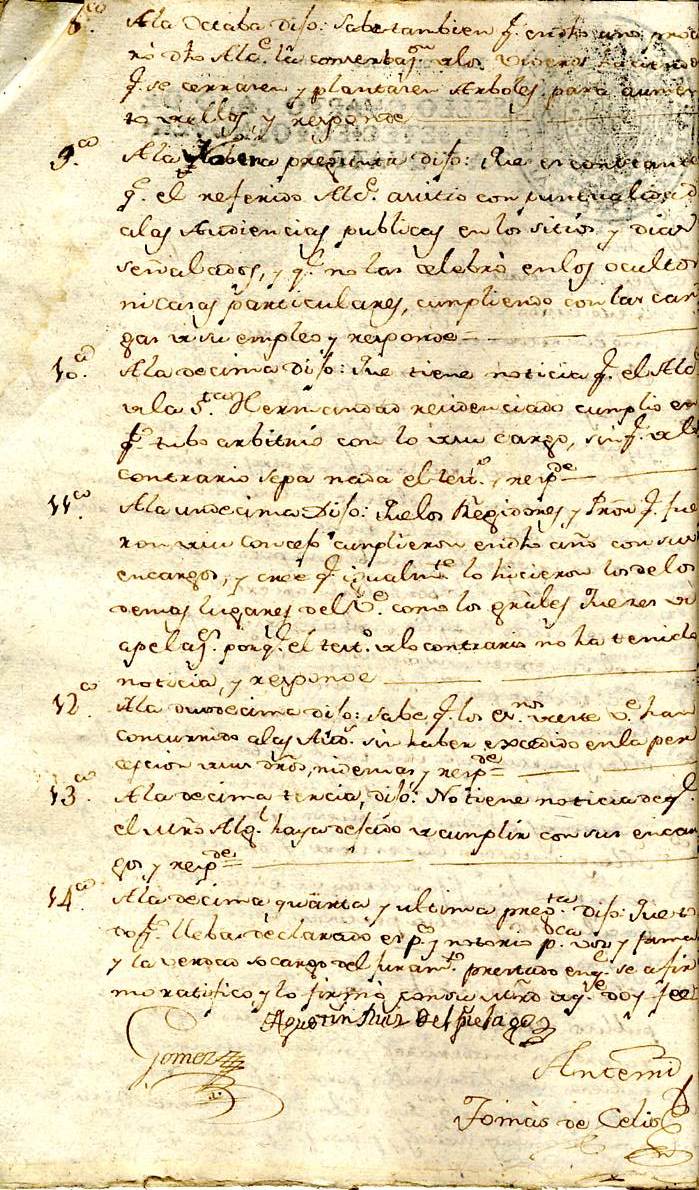 8.ª A la Octaba dijo: Sabe tambien q.e en dho año, procu
ró dho Alc.e la conserbaz.on de los viberos haciendo
q.e se cerrasen y plantasen Arboles para aumen
to de ellos y responde
9.ª A la Nobena pregunta dijo: Que en constante
q.e el referido Alc.e asistio con puntualidad
a las Audiencias publicas en los sitios y dias
señalados, y q.e no las celebró en los ocultos
ni casas particulares, cumpliendo con las car
gas de su empleo y responde
10.ª A la decima dijo: Que tiene noticia q.e el Alc.e
de la S.ta Hermandad residenciado cumplio en
q.to tubo arbitrio con lo de su cargo, sin q.e de lo
contrario sepa nada el test.o, y resp.de
11.ª A la undecima Dijo: Que los Regidores, y Pror.s q.e fue
ron de su Concejo cumplieron en dho año con sus
encargos, y cree q.e igualm.te lo hicieron los de los
demas lugares del V.e como los grâles Jueces de
apelaz.on porq.e el test.o de lo contrario no ha tenido
noticia, y responde
12.ª A la duodecima dijo: Sabe q.e los es.nos de este V.e han
concurrido a las Aud.s sin haber excedido en la per
cepcion de sus dros, ni demas y resp.de
13.ª A la decima tercia, dijo: No tiene noticia de q.e
el Mrño Alg.l haya dejado de cumplir con sus encar
gos y resp.de
14.ª A la decima quarta y ultima preg.ta dijo: Que to
do q.to lleba declarado es p.co y notorio p.ca voz y fama
y la verdad so cargo del juram.to prestado en q.e se afir
mo ratifico y lo firmó con su Mrd de q.e doy fee
Agustin Ruiz del Pielago
Gomez
Antemi
Tomàs de Celis